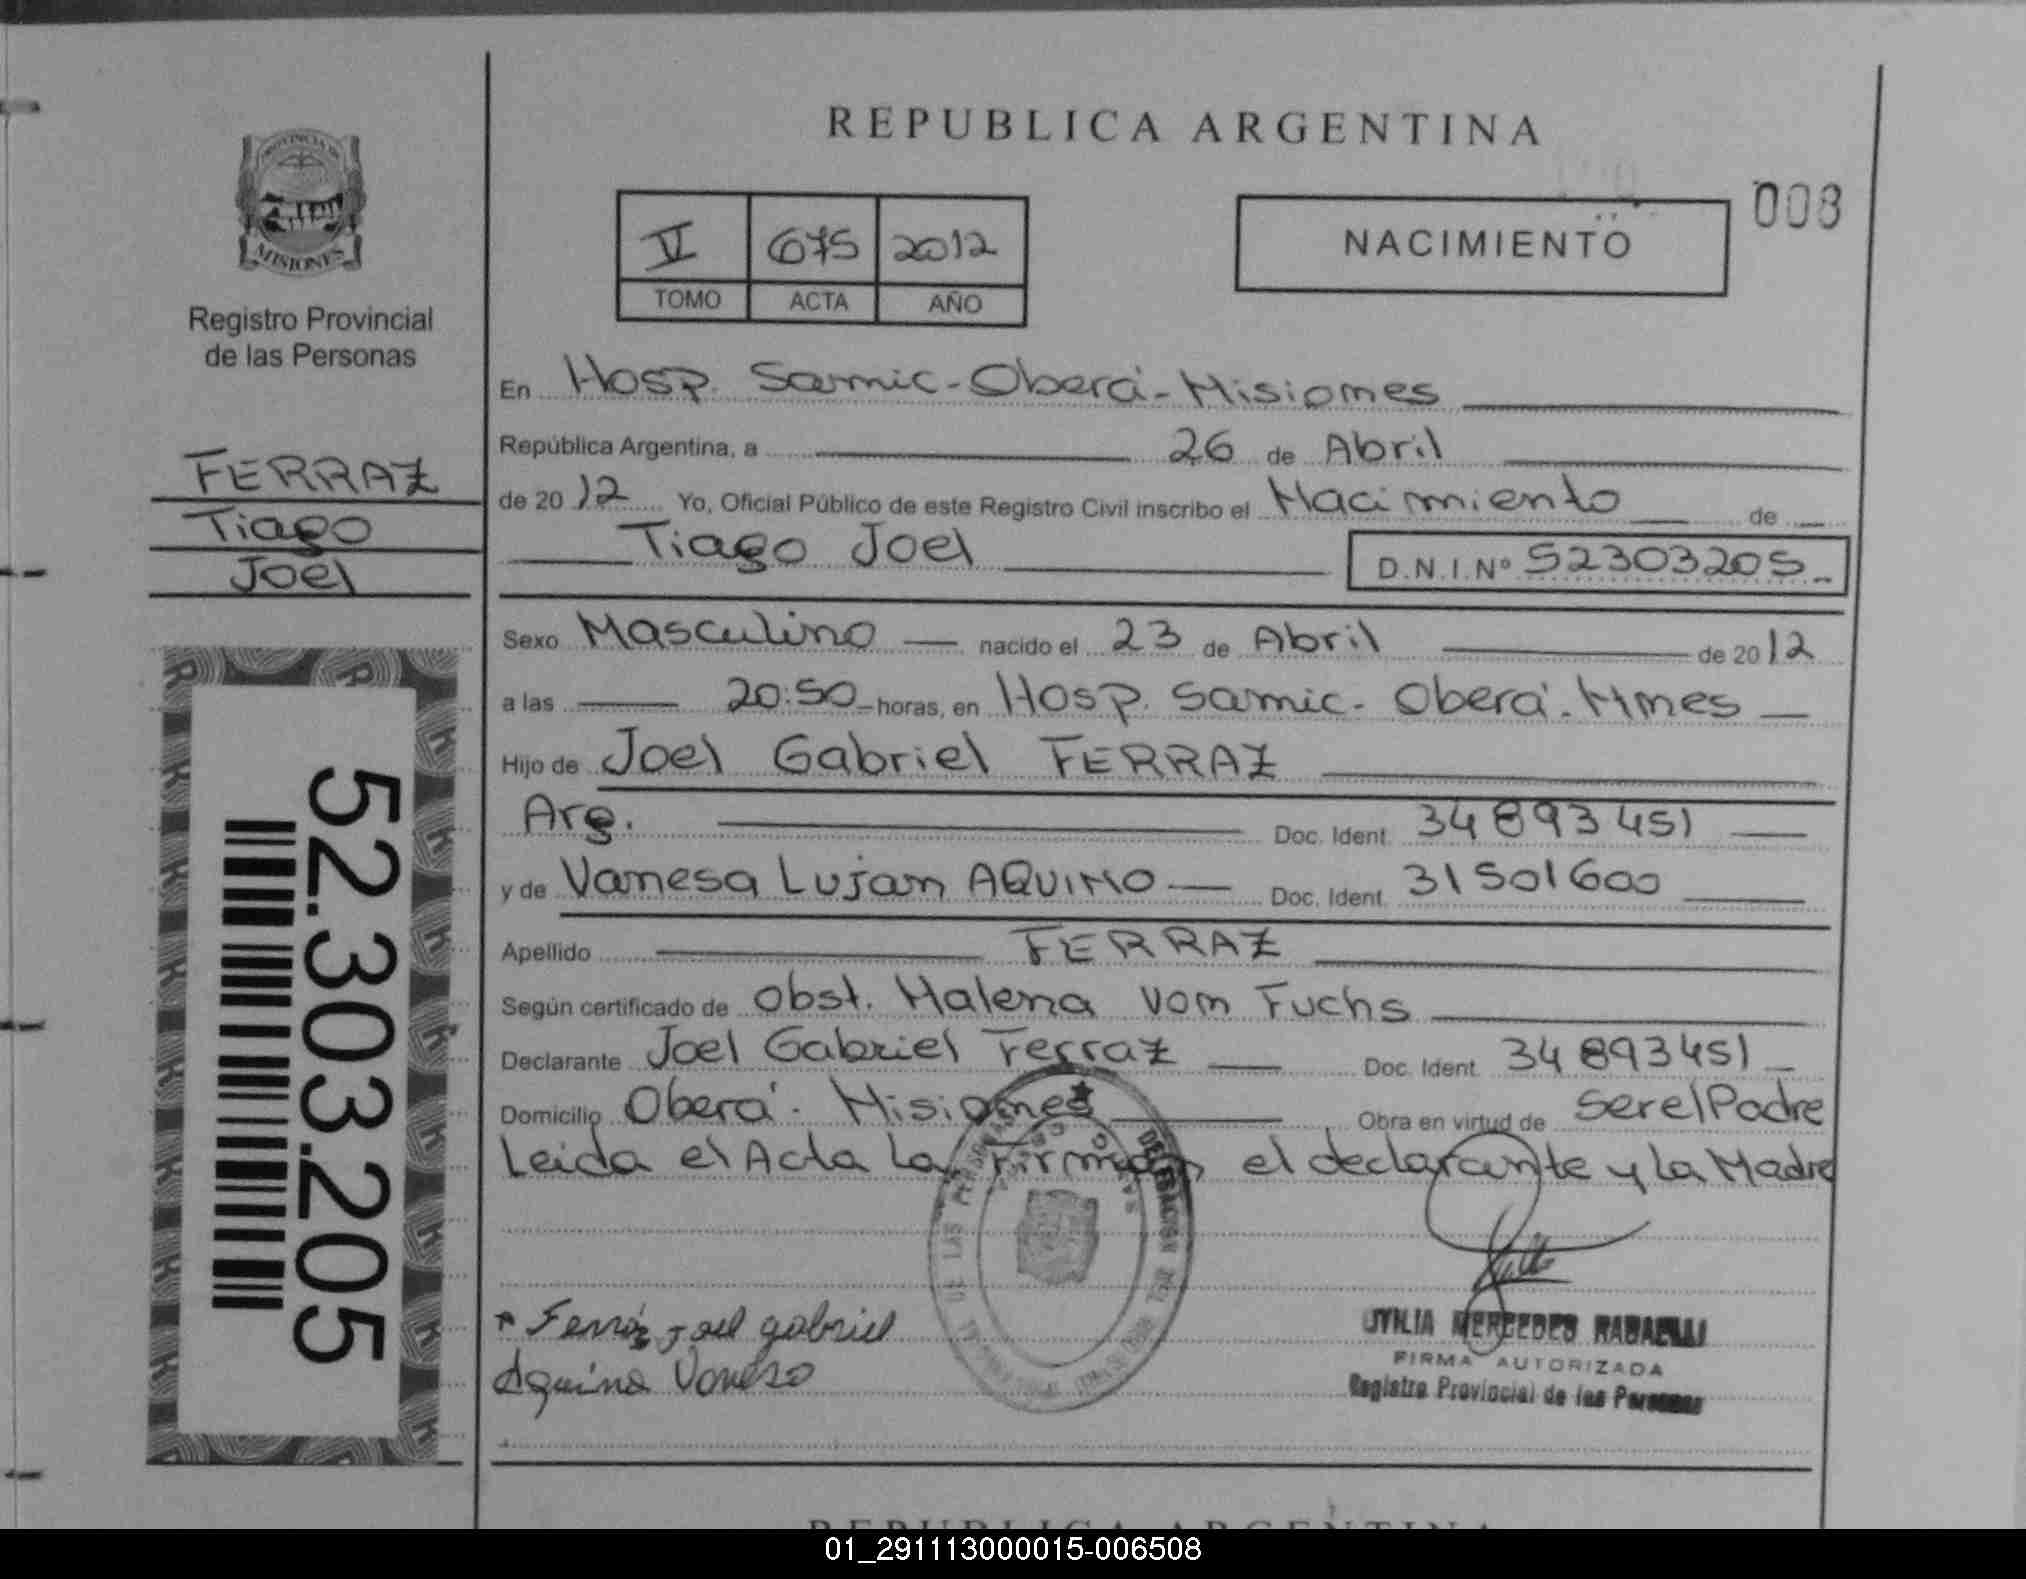 REPUBLICA ARGENTINA
PROVINCIA DE
MISIONES
Registro Provincial
de las Personas
V 675 2012
TOMO ACTA AÑO
NACIMIENTO
008
FERRAZ
Tiago
Joel
52.303.205
En Hosp. Samic - Oberá - Misiones
República Argentina, a 26 de Abril
de 2012 Yo, Oficial Público de este Registro Civil inscribo el Nacimiento de
Tiago Joel D.N.I.Nº 52303205
Sexo Masculino nacido el 23 de Abril de 2012
a las 20:50 horas, en Hosp. Samic - Oberá - Mnes
Hijo de Joel Gabriel FERRAZ
Arg. Doc. Ident. 34893451
y de Vanesa Lujan AQUINO Doc. Ident. 31501600
Apellido FERRAZ
Según certificado de Obst. Malena Von Fuchs
Declarante Joel Gabriel Ferraz Doc. Ident. 34893451
Domicilio Oberá - Misiones Obra en virtud de ser el Padre
Leida el Acta La Firman el declarante y La Madre
DE LAS PERSONAS
DELEGACION
Ferraz Joel gabriel
Aquino Vanesa
MERCEDES
FIRMA AUTORIZADA
Registro Provincial de las Personas
REPUBLICA ARGENTINA
01_291113000015-006508